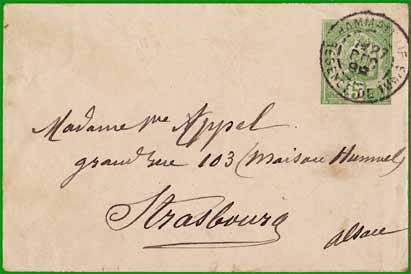 HAMMAM-LIF
REGENCE DE TUNIS
DEC
98
Madame Vve Appel
grand'rue 103 (Maison Hummel)
Strasbourg
Alsace